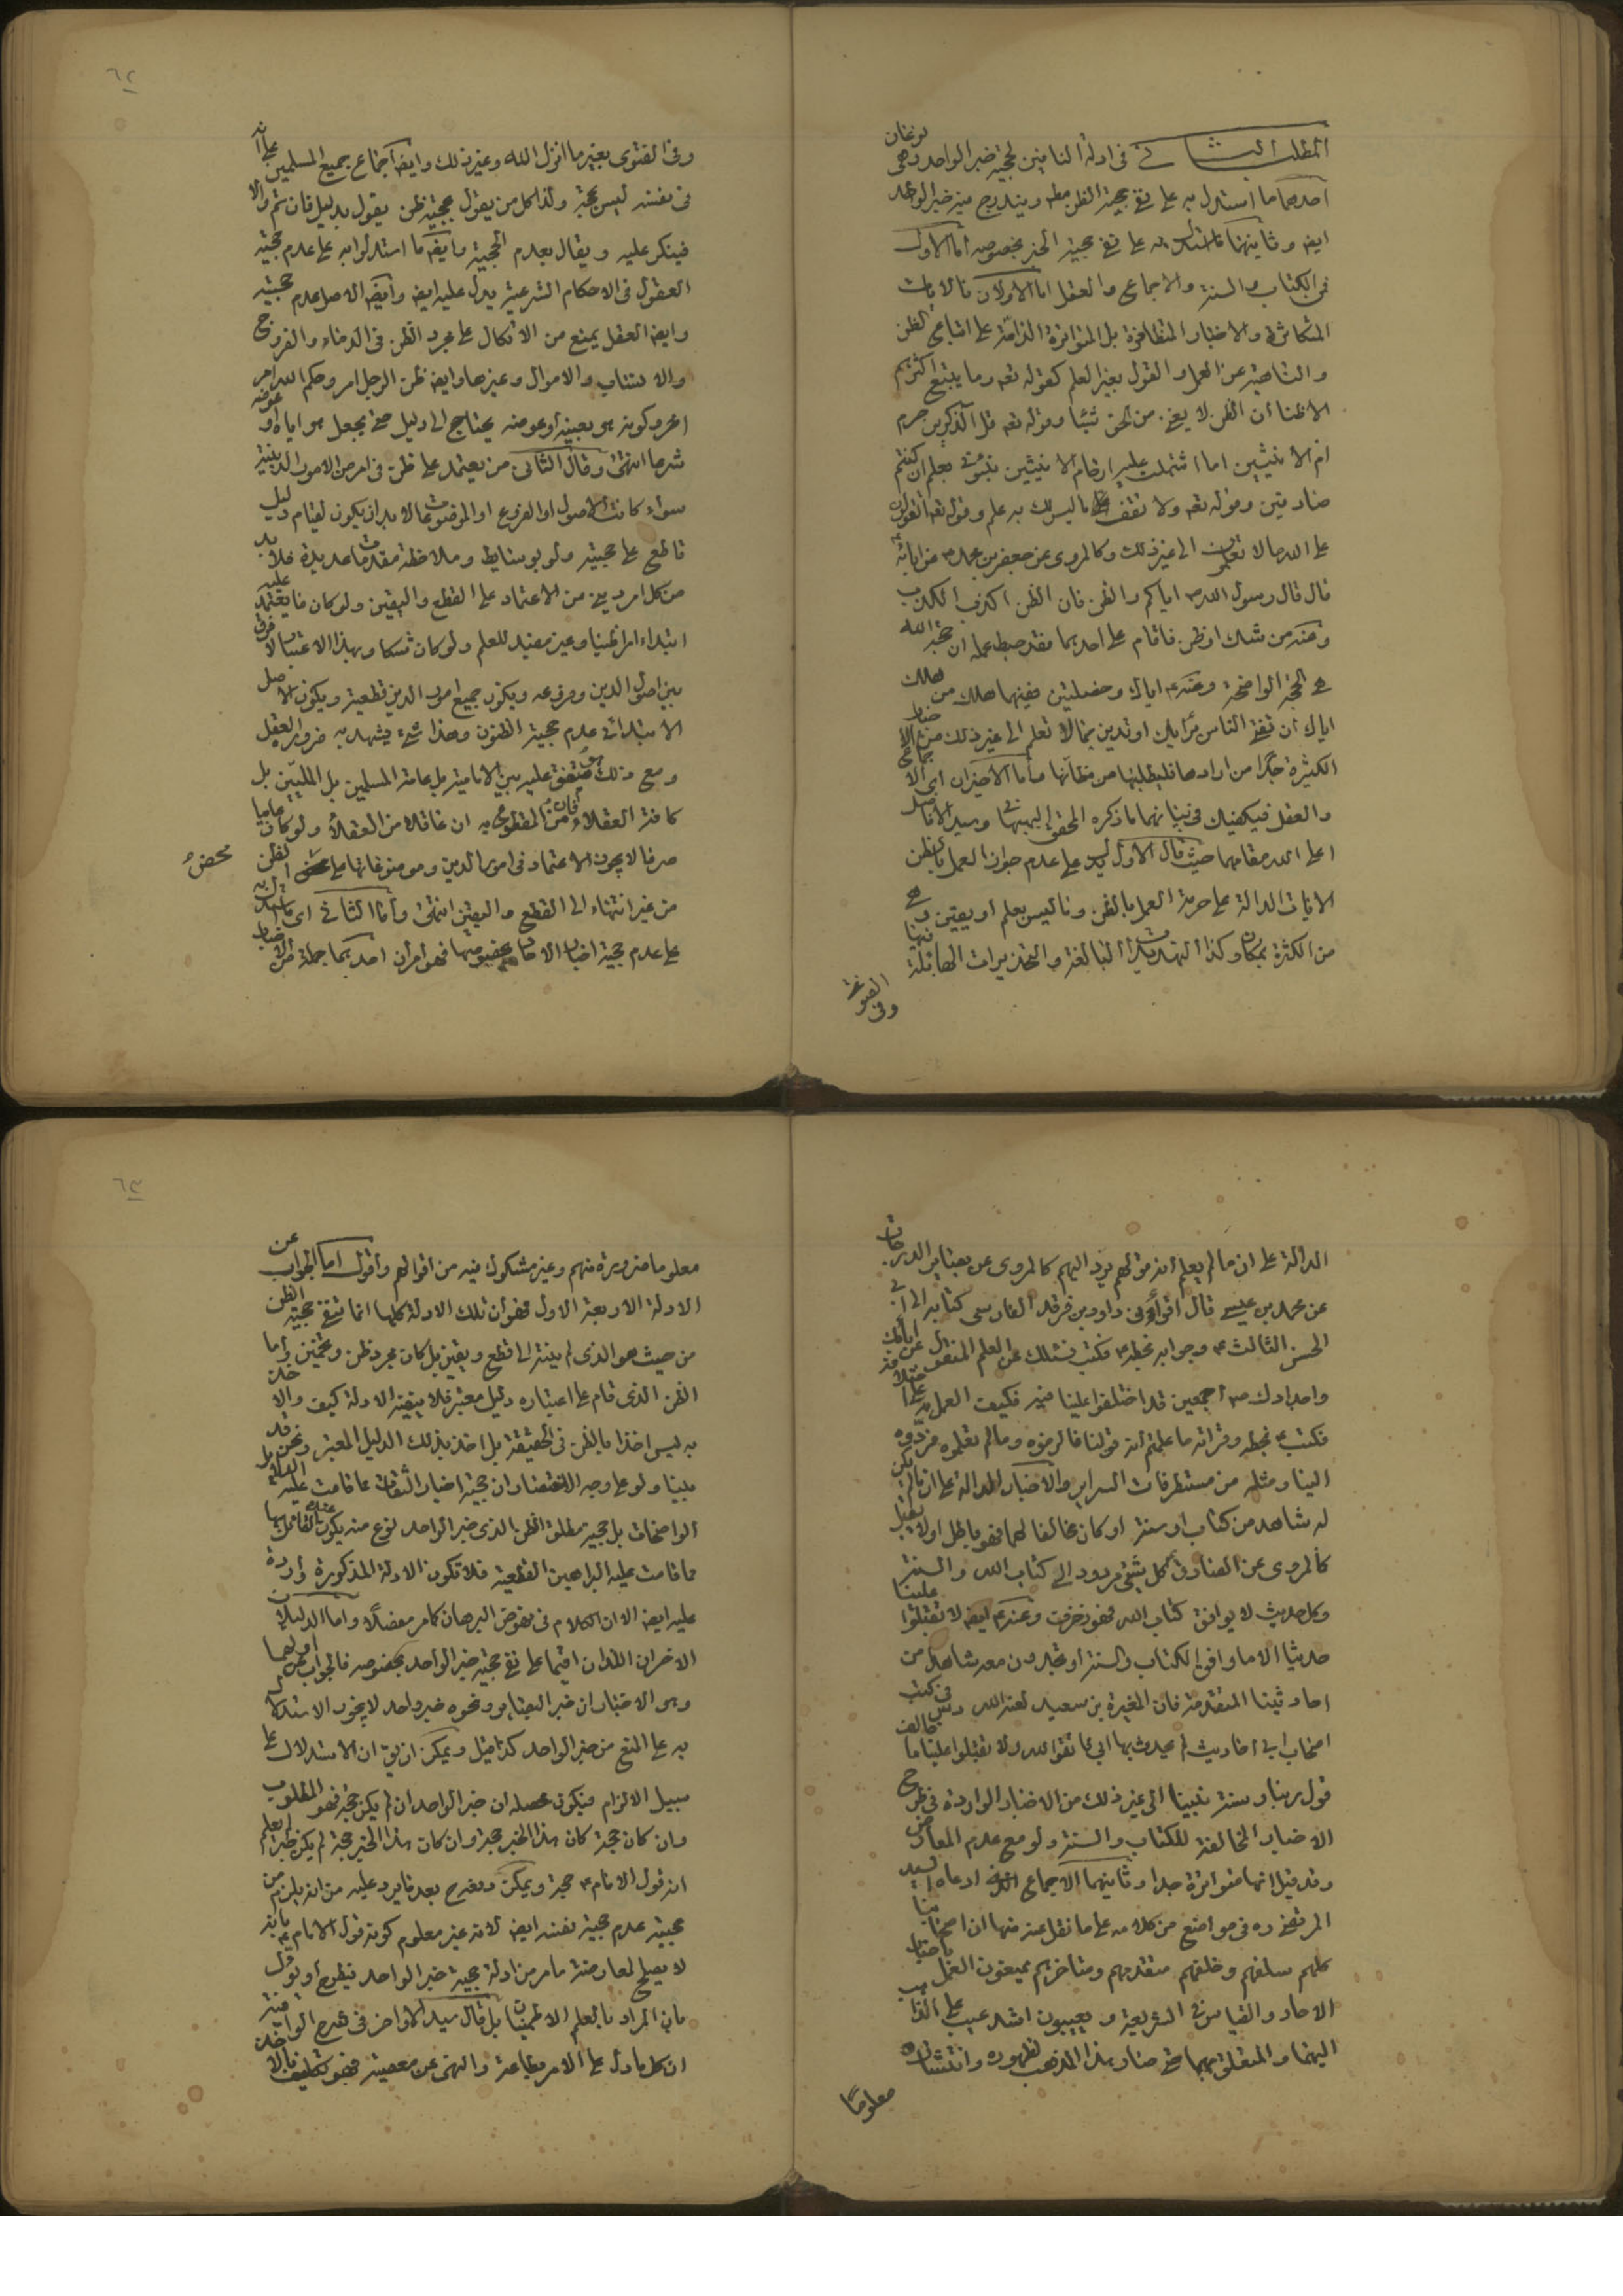 المطلب الثانى فى ادلة النافين لحجية خبر الواحد وهى نوعان
احدهما ما استدل به على نفى حجية الظن مطه ويندرج فيه خبر الواحد
ايضه وثانيهما ما استدل به على نفى حجية الخبر بخصوصه اما الاول
فمن الكتاب والسنة والاجماع والعقل اما الاولان فالايات
المتكاثرة والاخبار المتظافرة بل المتواترة الذامّة على اتباع الظن
والناهية عن العمل والقول بغير العلم كقوله تعه وما يتبع اكثرهم
الا ظنا ان الظن لا يغنى من الحق شيئا وقوله تعه قل آلذكرين حرم
ام الانثيين اما اشتملت عليه ارحام الانثيين نبئونى بعلم ان كنتم
صادقين وقوله تعه ولا تقف ما ليس لك به علم وقوله تعه اتقولون
على الله ما لا تعلمون الى غير ذلك وكالمروى عن جعفر بن محمد ع عن ابائه ع
قال قال رسول الله ص اياكم والظن فان الظن اكذب الكذب
وعنه من شك او ظن فاقام على احدهما فقد حبط عمله ان حجة الله
هى الحجة الواضحة وعنه ع اياك وخصلتين ففيهما هلك من هلك
اياك ان تفتى الناس برايك او تدين بما لا تعلم الى غير ذلك من الاخبار
الكثيرة جدًا من ارادها فليطلبها من مظآنها واما الاخيران اى الاجماع
والعقل فيكفيك فى بيانهما ما ذكره المحقق البهبهانى وسيد الافاضل
اعلى الله مقامهما حيث قال الاول يدل على عدم جواز العمل بالظن
الايات الدالة على حرمة العمل بالظن وما ليس بعلم او يقين وهى
من الكثرة بمكان وكذا التهديدات البالغة والتحذيرات الهائلة فيها
وفى الفتوى
وفى الفتوى بغير ما انزل الله وغير ذلك وايضه اجماع جميع المسلمين على انه
فى نفسه ليس بحجة ولذا كل من يقول بحجية ظن يقول بدليل فان تم والا
فينكر عليه ويقال بعدم الحجية وايضه ما استدلوا به على عدم حجية
العقول فى الاحكام الشرعية يدل عليه ايضه وايضه الاصل عدم حجيته
وايضه العقل يمنع من الاتكال على مجرد الظن فى الدماء والفروج
والانساب والاموال وغيرها وايضه ظن الرجل امر وحكم الله امر
اخر وكونه هو بعينه او عوضه يحتاج الى دليل حتى يجعل هو اياه او عوضه
شرعا انتهى وقال الثانى من يعتمد على ظن فى امر من الامور الدينية
سواء كانت الاصول او الفروع او الموضوعات لا بد ان يكون لقيام دليل
قاطع على حجيته ولو بوسايط وملاحظة مقدمات عديدة فلا بد
من كل امر دينى من الاعتماد على القطع واليقين ولو كان ما يعتمد عليه
ابتداء امرا ظنيا وغير مفيد للعلم ولو كان شكا وبهذا الاعتبار لا فرق
بين اصول الدين وفروعه ويكون جميع امور الدين قطعية ويكون الاصل
الابتدائى عدم حجية الظنون وهذا شىء يشهد به ضرورة العقل
ومع ذلك هو متفق عليه بين الامامية بل عامة المسلمين بل المليّين بل
كافة العقلاء فان من المقطوع به ان عاقلا من العقلاء ولو كان عاميا
صرفا لا يجوز الاعتماد فى امور الدين وموضوعاتها على محض الظن
من غير انتهاء الى القطع واليقين انتهى واما الثانى اى ما استدل به
على عدم حجية اخبار الاحاد بخصوصها فهو امران احدهما جملة من الاخبار
محض
الدالة على ان ما لم يعلم انه قولهم يرد اليهم كالمروى عن بصاير الدرجات
عن محمد بن عيسى قال اقرأنى داود بن فرقد الفارسى كتابه الى ابى
الحسن الثالث ع وجوابه بخطه ع فكتب نسئلك عن العلم المنقول عن ابائك
واجدادك ص اجمعين قد اختلفوا علينا فيه فكيف العمل به على اختلافه
فكتب ع بخطه وقراته ما علمتم انه قولنا فالزموه وما لم تعلموه فردّوه
الينا ومثله من مستطرفات السراير والاخبار الدالة على ان ما لم يكن
له شاهد من كتاب او سنة او كان مخالفا لهما فهو باطل او لا يقبل
كالمروى عن الصادق ع كل شىء مردود الى كتاب الله والسنة
وكل حديث لا يوافق كتاب الله فهو زخرف وعنه ع ايضه لا تقبلوا علينا
حديثا الا ما وافق الكتاب والسنة او تجدون معه شاهدا من
احاديثنا المتقدمة فان المغيرة بن سعيد لعنه الله دس فى كتب
اصحاب ابى احاديث لم يحدث بها ابى فاتقوا الله ولا تقبلوا علينا ما خالف
قول ربنا وسنة نبينا الى غير ذلك من الاخبار الواردة فى طرح
الاخبار المخالفة للكتاب والسنة ولو مع عدم المعارض
وقد قيل انها متواترة جدا وثانيهما الاجماع الذى ادعاه السيد
المرتضى ره فى مواضع من كلامه على ما نقل عنه منها ان اصحابنا
كلهم سلفهم وخلفهم متقدمهم ومتاخرهم يمنعون العمل باخبار
الاحاد والقياس فى الشريعة ويعيبون اشد عيب على الذاهب
اليهما والمتعلق بهما حتى صار هذا المذهب لظهوره وانتشاره
معلومًا
معلوما ضرورة منهم وغير مشكوك فيه من اقوالهم واقول اما الجواب عن
الادلة الاربعة الاول فهو ان تلك الادلة كلها انما تنفى حجية الظن
من حيث هو الذى لم ينته الى قطع ويقين بل كان مجرد ظن وتخمين واما
الظن الذى قام على اعتباره دليل معتبر فلا ينفيه الادلة كيف والاخذ
به ليس اخذا بالظن فى الحقيقة بل اخذ بذلك الدليل المعتبر ونحن قد
بينا ولو على وجه الاختصار ان حجية اخبار الثقات مما قامت عليه الدلايل
الواضحات بل حجية مطلق الظن الذى خبر الواحد نوع منه يكون عند القائل بها
مما قامت عليه البراهين القطعية فلا تكون الادلة المذكورة واردة
عليه ايضه الا ان الكلام فى نهوض البرهان كما مر مفصلًا واما الدليلان
الاخران اللذان اقيما على نفى حجية خبر الواحد بخصوصه فالجواب عن اولهما
وهو الاخبار ان خبر البصاير ونحوه خبر واحد لا يجوز الاستدلال
به على المنع من خبر الواحد كذا قيل ويمكن ان يق ان الاستدلال على
سبيل الالزام فيكون محصله ان خبر الواحد ان لم يكن حجة فهو المطلوب
وان كان حجة كان هذا الخبر حجة وان كان هذا الخبر حجة لم يكن خبر لم يعلم
انه قول الامام ع حجة ويمكن ان يجيب بعد ما يرد عليه من انه يلزم من
حجيته عدم حجية نفسه ايضه لانه غير معلوم كونه قول الامام ع بانه
لا يصلح لمعارضة ما مر من ادلة حجية خبر الواحد فيطرح او يؤل
بان المراد بالعلم الاطمينان بل قال سيد الاواخر فى شرح الوافية
ان كل ما دل على الامر بطاعة والنهى عن معصية فهو تكليف بالاخذ